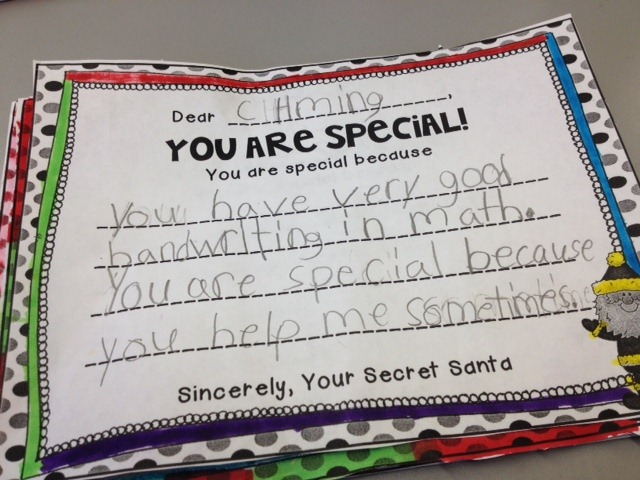 Dear ,
YOU ARE SPECIAL!
You are special because
you have very good
handwriting in math.
You are special because
you help me sometimes
Sincerely, Your Secret Santa